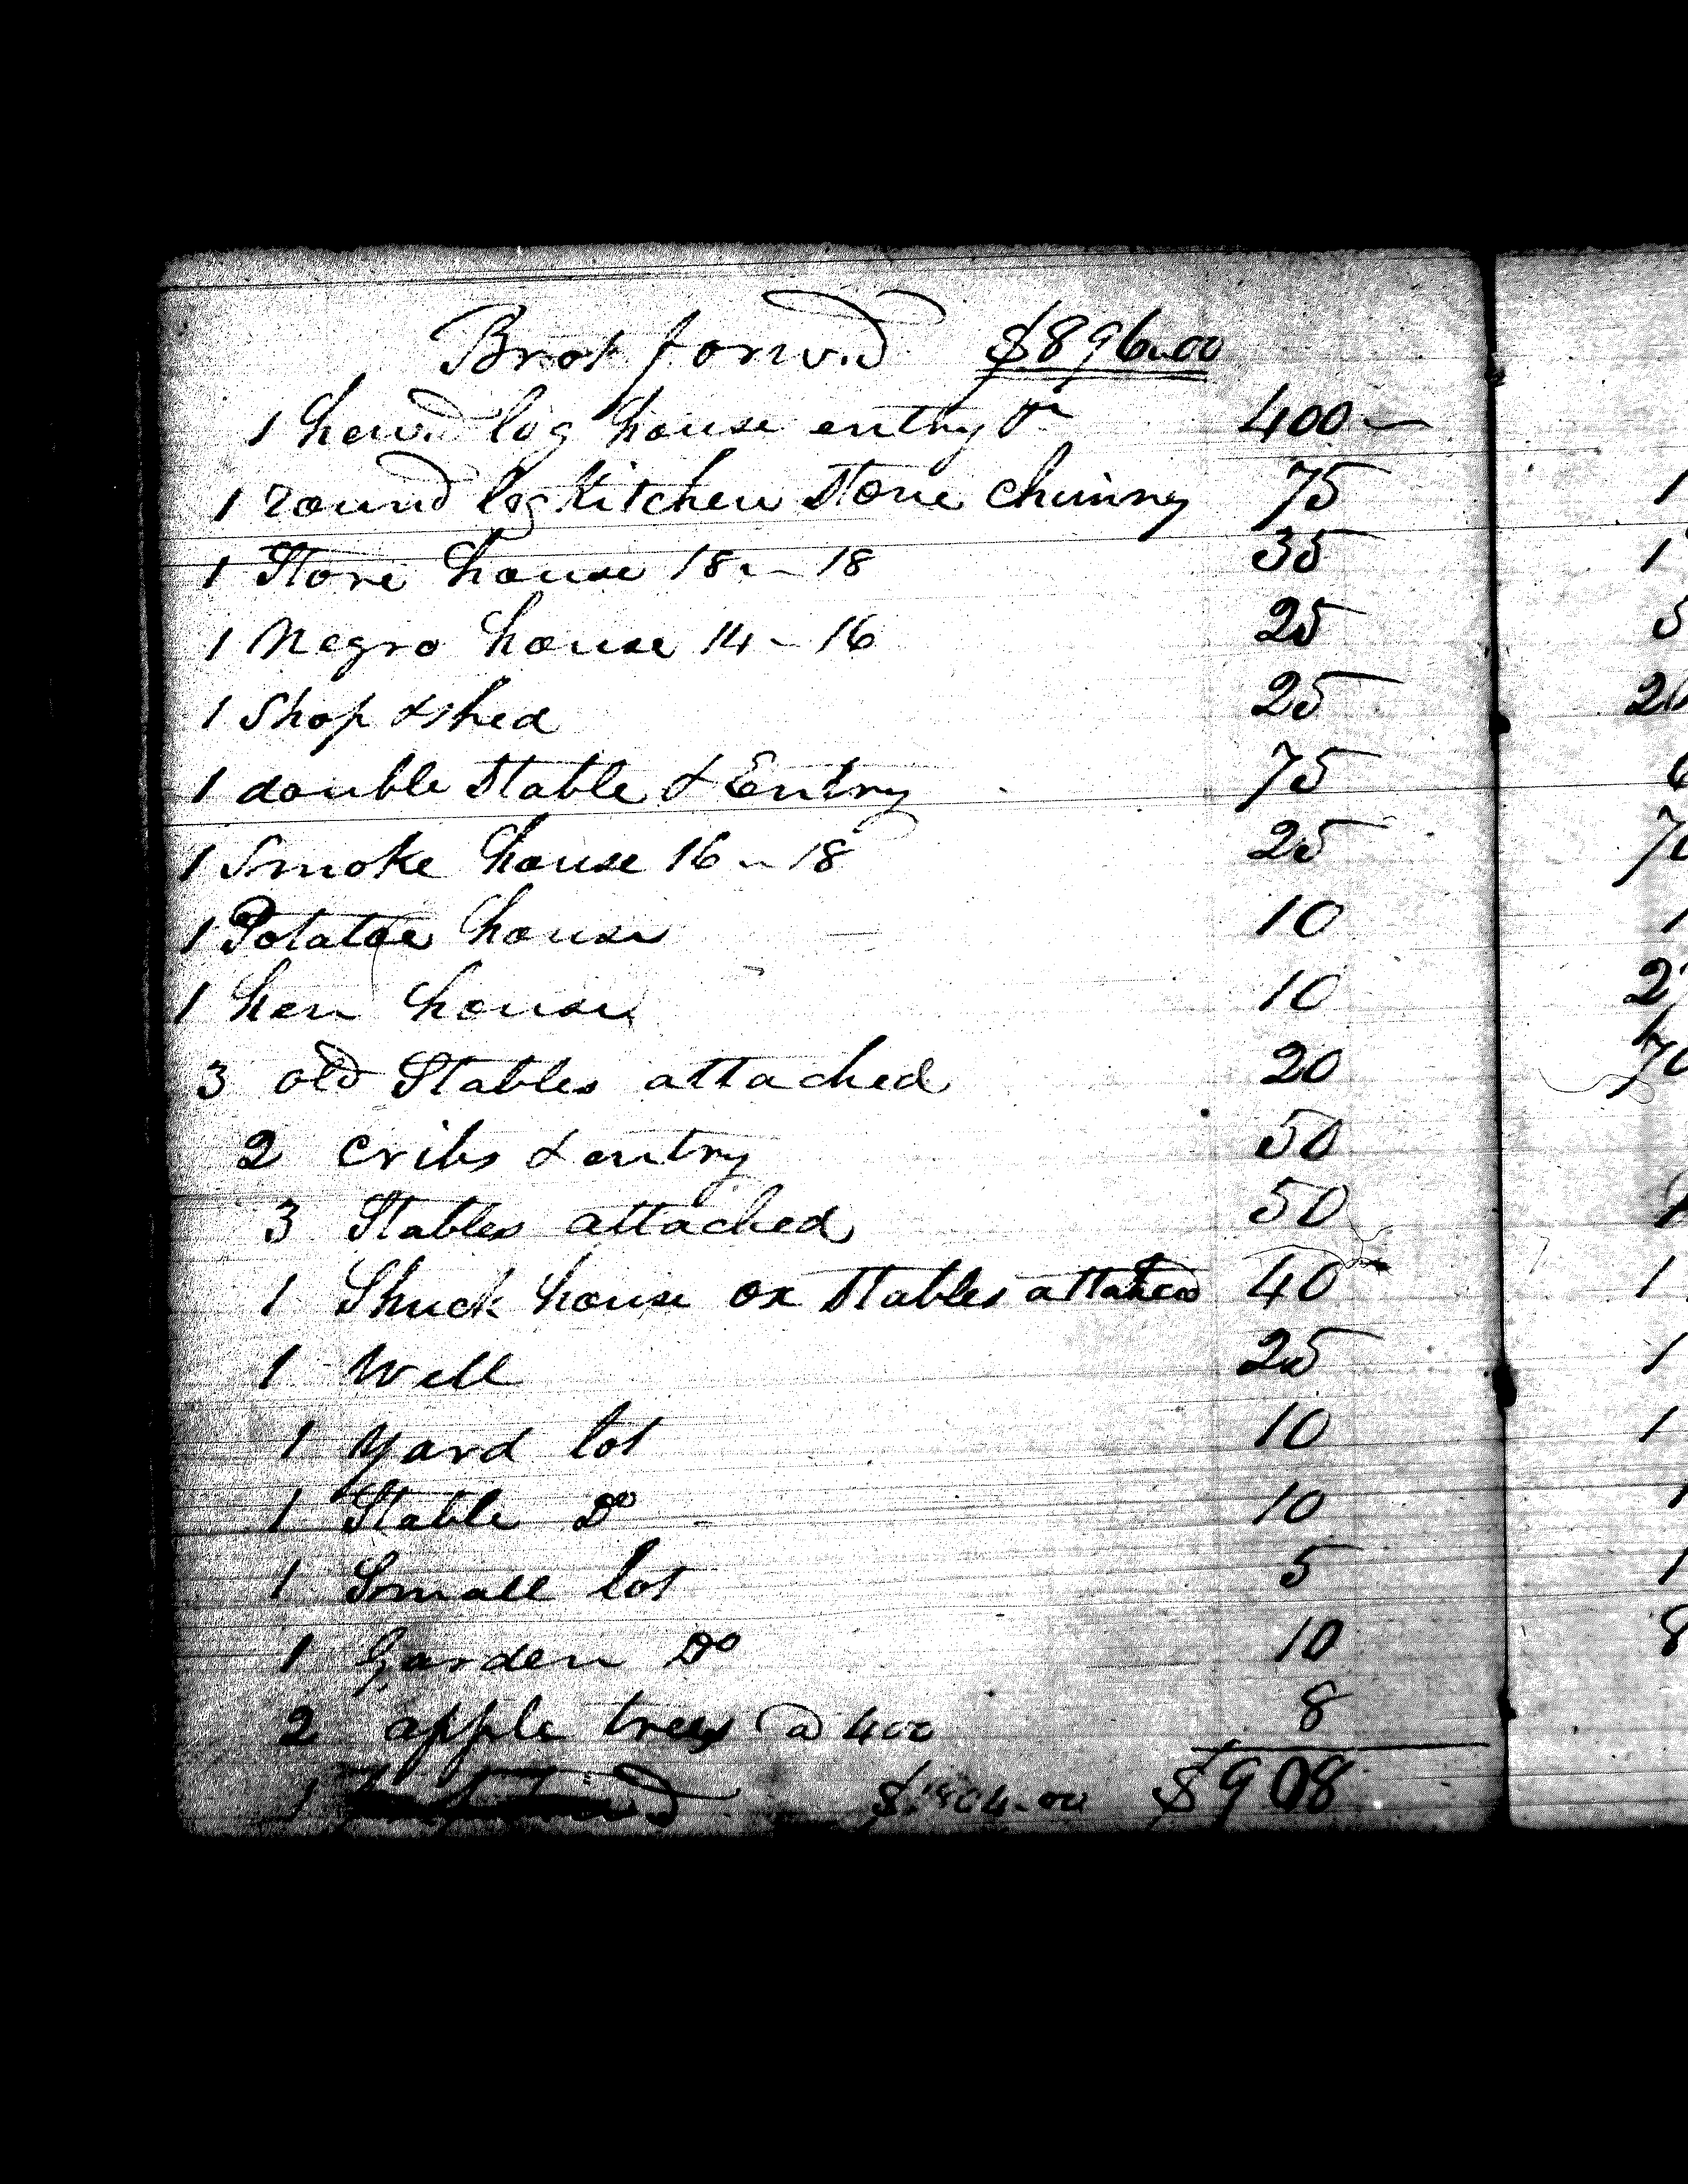 Brot forwd $896.00
1 hewd log house entry &c 400 —
1 round log Kitchen Stone chimny 75
1 Store house 18 - 18 35
1 Negro house 14 - 16 25
1 Shop & shed 25
1 double Stable & Entry 75
1 Smoke house 16 - 18 25
1 Potatoe house 10
1 hen house 10
3 old Stables attached 20
2 cribs & entry 50
3 Stables attached 50
1 Shuck house ox Stables attached 40
1 Well 25
1 Yard lot 10
1 Stable Do 10
1 Small lot 5
1 Garden Do 10
2 apple trees @ 400 8
1 $1804.00 $908